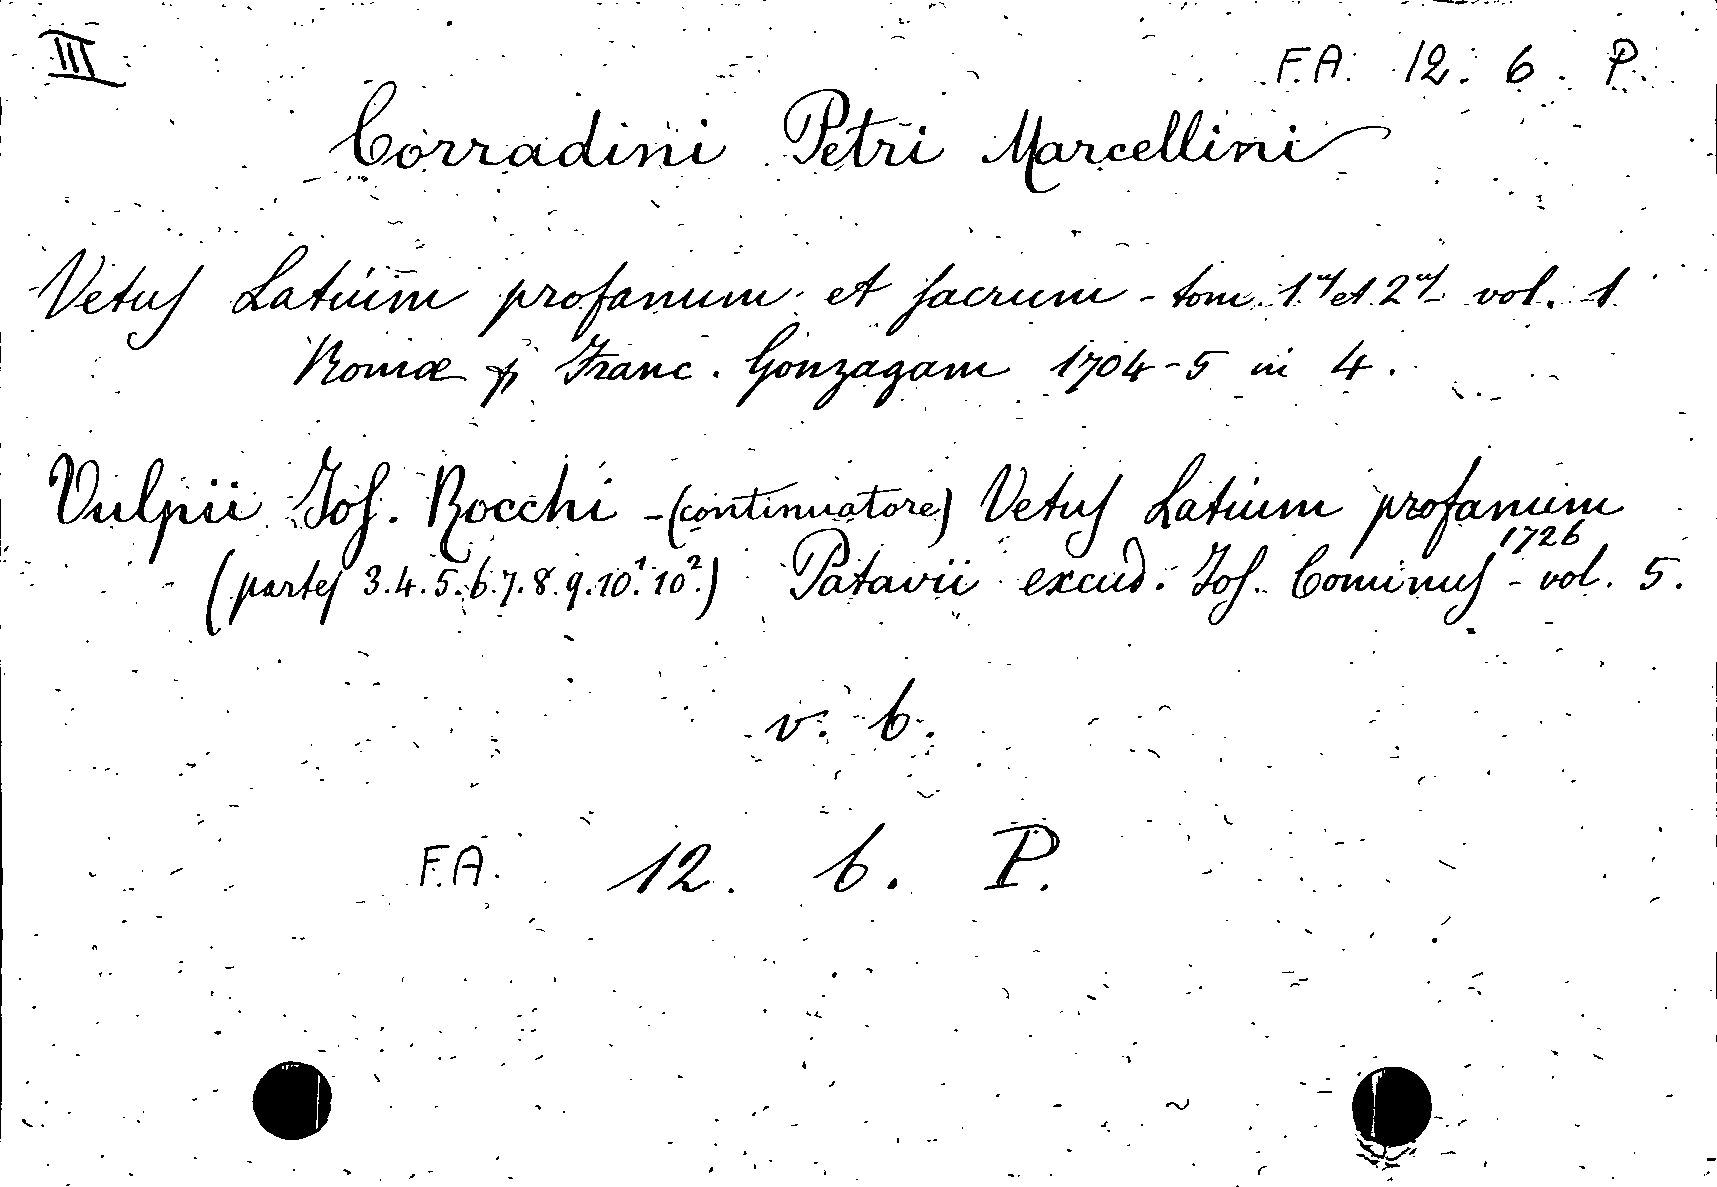 III
F.A. 12. 6. P.
Corradini Petri Marcellini
Vetus Latium profanum et sacrum - tom. 1us et 2us vol. 1
Romæ p Franc. Gonzagam 1704-5 in 4.
Vulpii Jos. Rocchi - (continuatore) Vetus Latium profanum
1726
(partes 3.4.5.6.7.8.9.10.¹ 10².) Patavii excud. Jos. Cominus - vol. 5.
v. 6.
F.A. 12. 6. P.